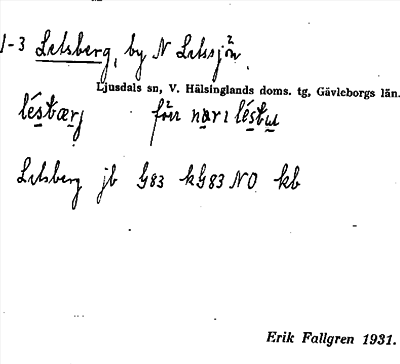 1-3 Letsberg, by N Letssjön.
Ljusdals sn, V. Hälsinglands doms. tg, Gävleborgs län.
léstbærj
Letsberg jb G83 kG83 NO kb
Erik Fallgren 1931.